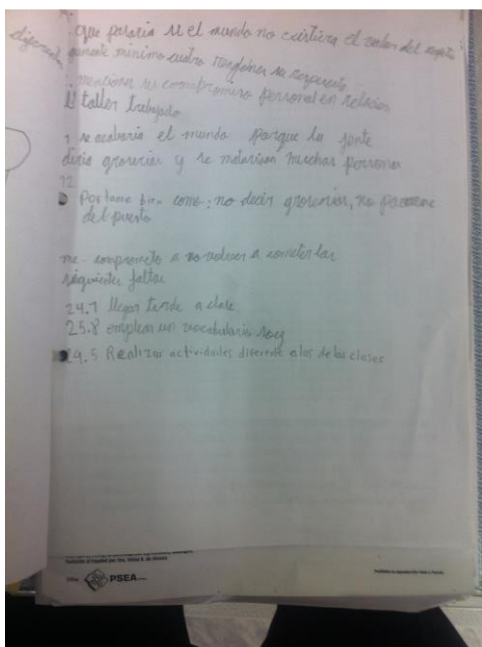 que pasaria si el mundo no existiera el valor del respeto
minimo cuatro renglones su respuesta
mencione su compromiso personal en relacion
el taller trabajado
1 se acabaria el mundo porque la jente
diria groserias y se matarian muchas personas
12
Portame bien como: no decir groserias, no pararme
del puesto
me comprometo a no volver a cometer las
siguientes faltas
24.7 llegar tarde a clase
25.8 emplear un vocabulario soez
24.5 Realizar actividades diferente a las de las clases
PSEA